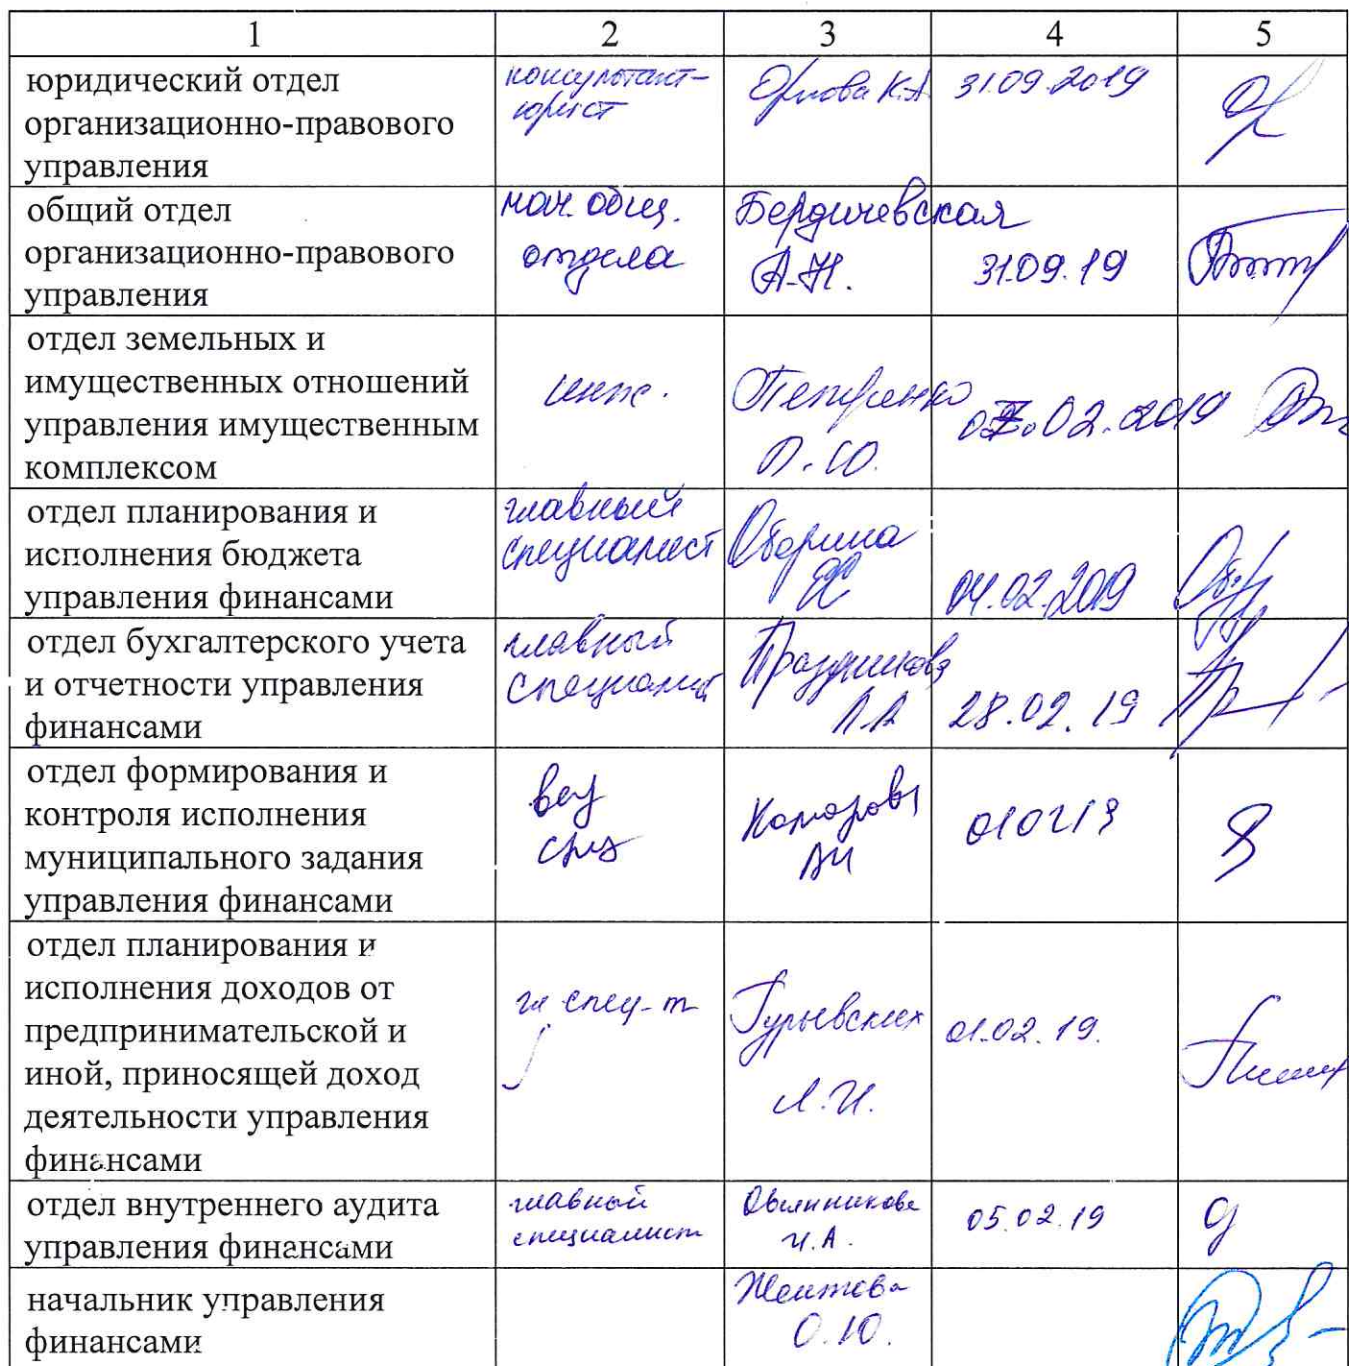 1 2 3 4 5
юридический отдел
организационно-правового
управления
консультант-
юрист
К.А.
31.09.2019
общий отдел
организационно-правового
управления
нач. общ.
отдела
Бердичевская
А.Н.
31.09.19
отдел земельных и
имущественных отношений
управления имущественным
комплексом
инж.
Петренко
П.Ю.
02.2019
отдел планирования и
исполнения бюджета
управления финансами
главный
специалист
Оборина
04.02.2019
отдел бухгалтерского учета
и отчетности управления
финансами
главный
специалист
28.02.19
отдел формирования и
контроля исполнения
муниципального задания
управления финансами
вед
спец
отдел планирования и
исполнения доходов от
предпринимательской и
иной, приносящей доход
деятельности управления
финансами
гл спец-т
Гурьевских
Л.И.
01.02.19.
отдел внутреннего аудита
управления финансами
главный
специалист
Овчинникова
И.А.
05.02.19
начальник управления
финансами
О.Ю.